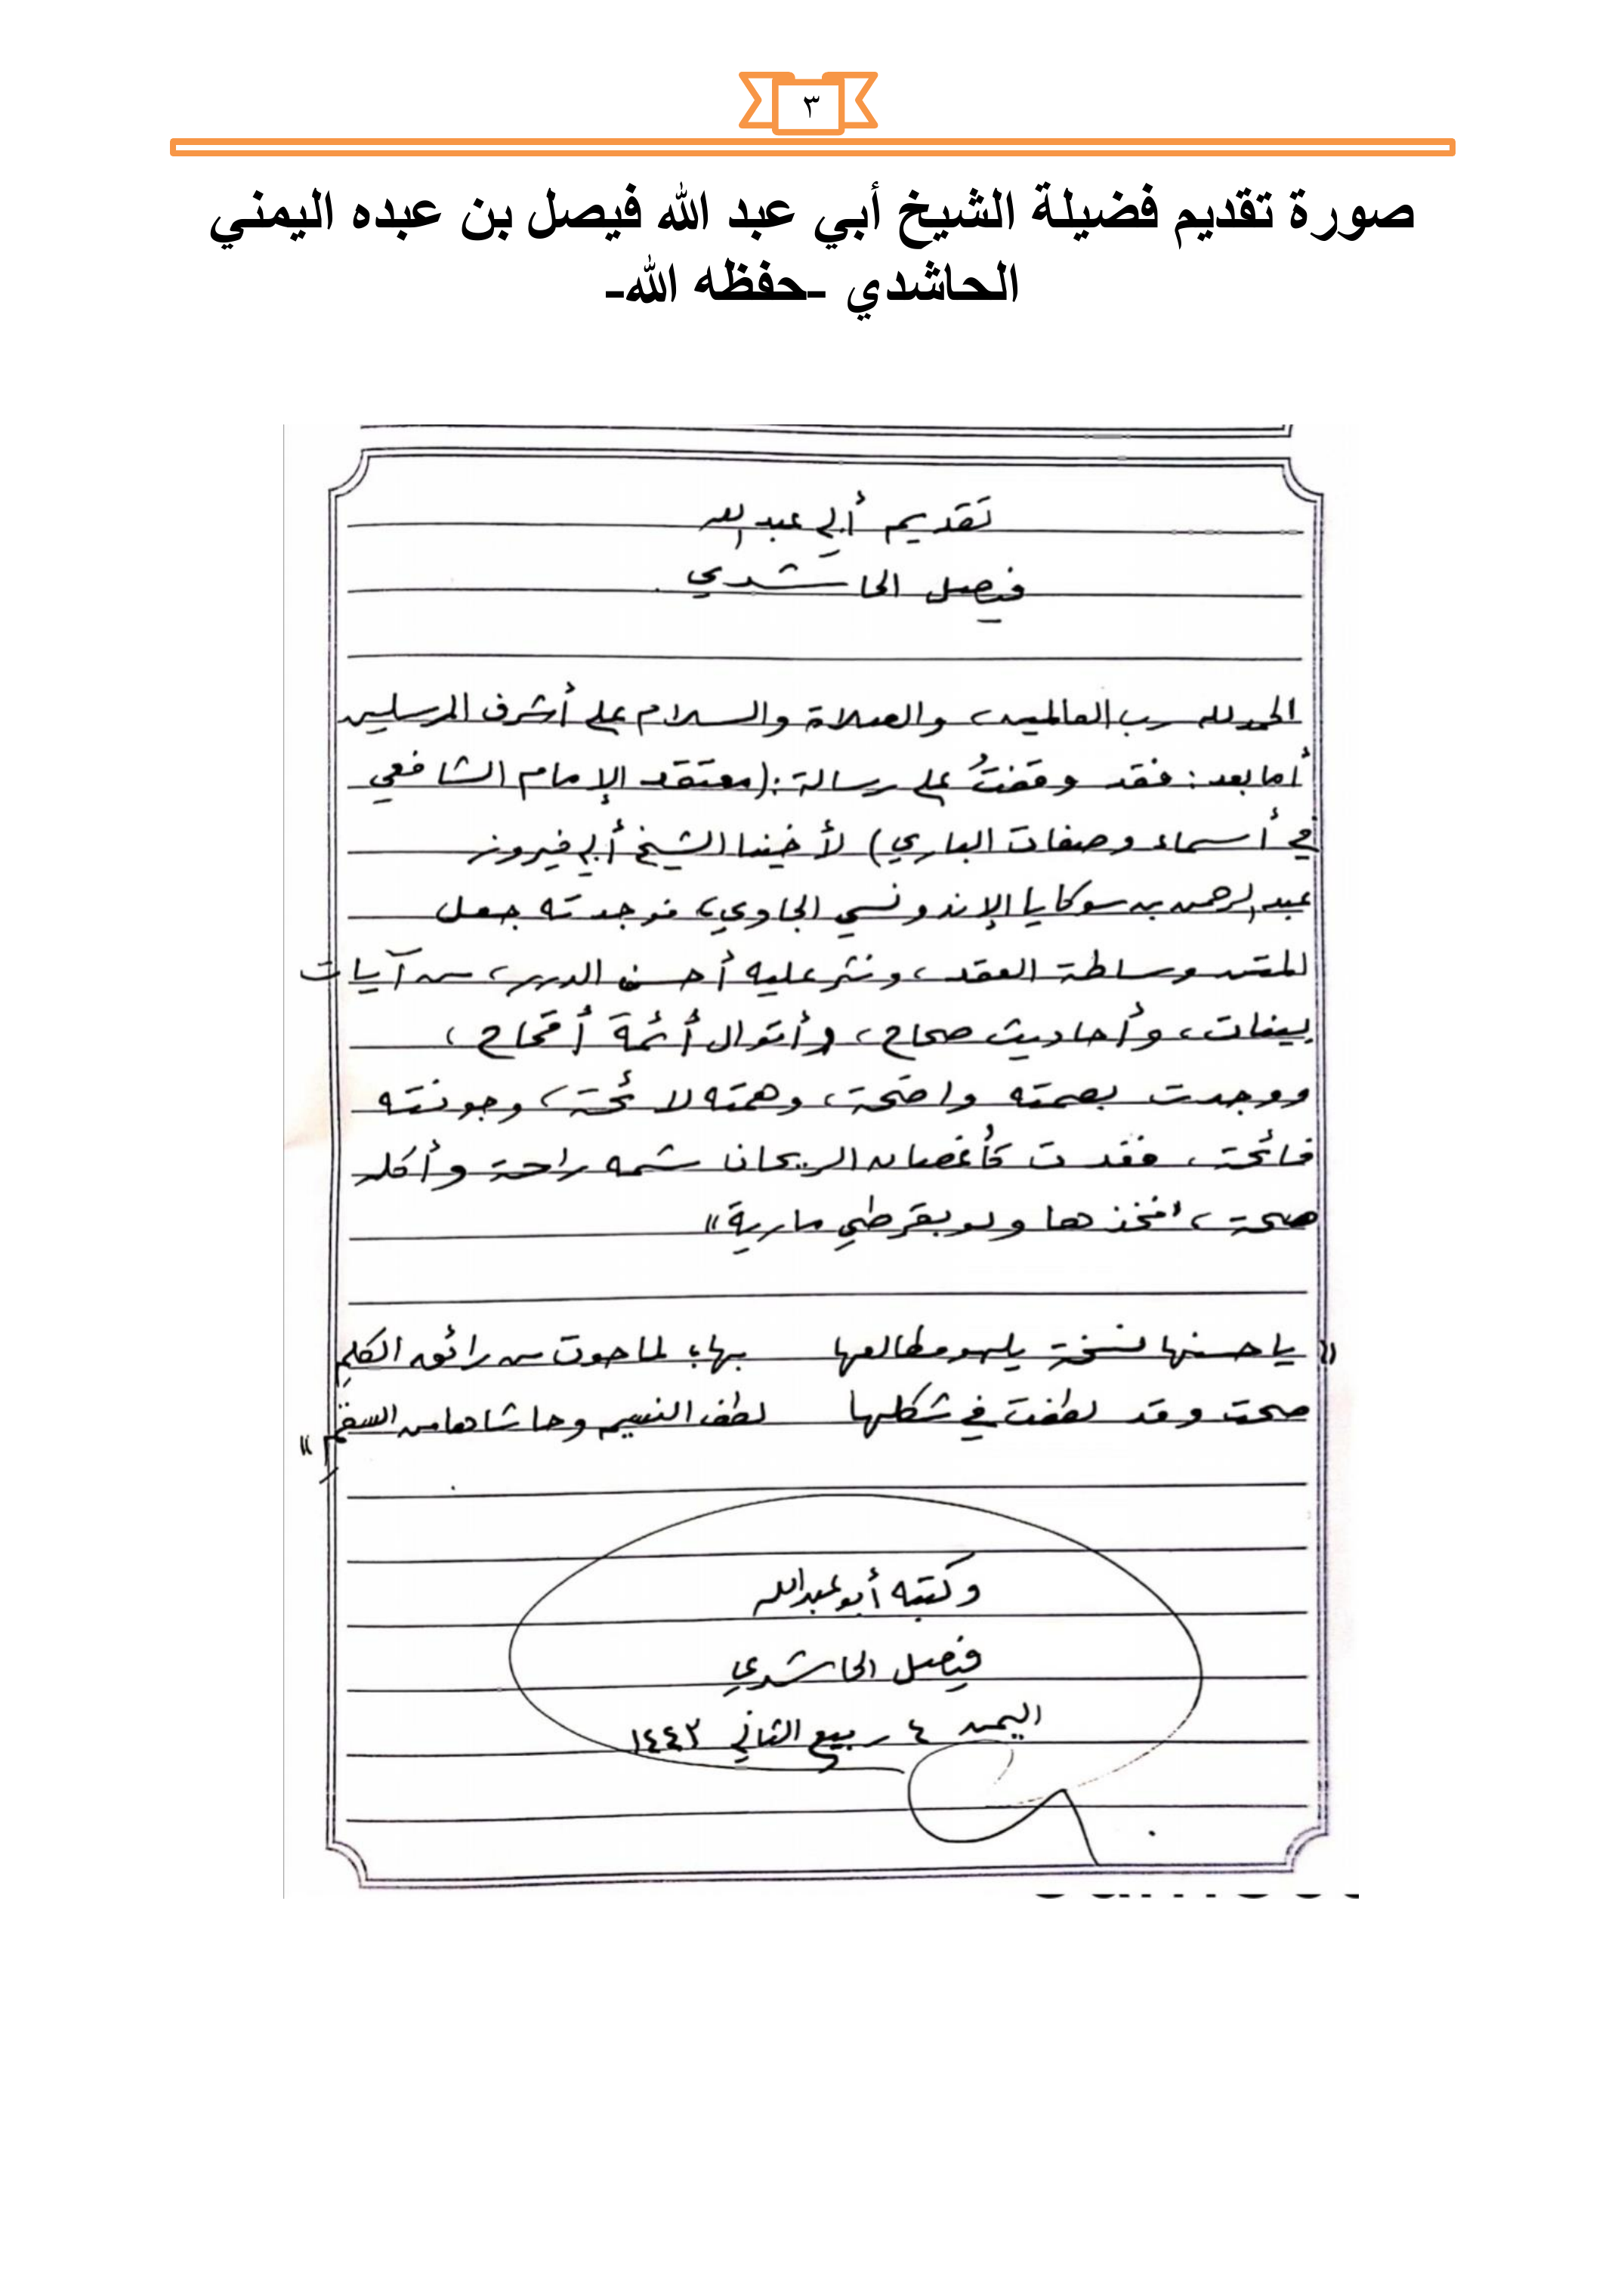 ٣
صورة تقديم فضيلة الشيخ أبي عبد الله فيصل بن عبده اليمني
الحاشدي -حفظه الله-
تقديم أبي عبد الله
فيصل الحاشدي
الحمد لله رب العالمين، والصلاة والسلام على أشرف المرسلين
أما بعد: فقد وقفتُ على رسالة: (معتقد الإمام الشافعي
في أسماء وصفات الباري) لأخينا الشيخ أبي فيروز
عبد الرحمن بن سوكايا الإندونسي الجاوي، فوجدته جعل
المتن وساطة العقد، ونثر عليه أحسن الدرر، من آيات
بينات، وأحاديث صحاح، وأقوال أئمة أقحاح،
ووجدت بصمته واضحة، وهمته لائحة، وجونته
فائحة، فغدت كأغصان الريحان شمه راحة وأكله
صحة، «فخذها ولو بقرطي مارية»
« يا حسنها نسخة يلهو مطالعها بها، لما حوت من رائق الكلمِ
صحت وقد لطفت في شكلها لطف النسيم وحاشاها من السقمِ »
وكتبه أبو عبد الله
فيصل الحاشدي
اليمن ٤ ربيع الثاني ١٤٤٢